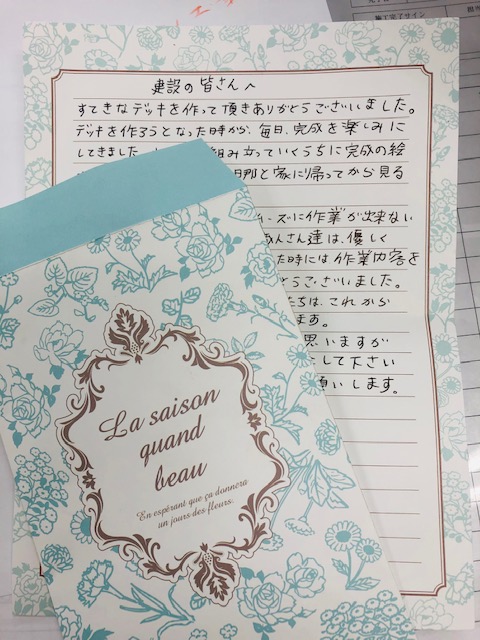 施工完了サイン
建設の皆さんへ
すてきなデッキを作って頂きありがとうございました。
デッキを作ろうとなった日から、毎日、完成を楽しみに
してきました。
組み立っていくうちに完成の絵
旦那と家に帰ってから見る
ーズに作業が出来ない
さん達は、優しく
た時には作業内容を
とうございました。
たちは、これから
ます。
思いますが
して下さい
願いします。
La saison
quand
beau
En espérant que ça donnera
un jours des fleurs.